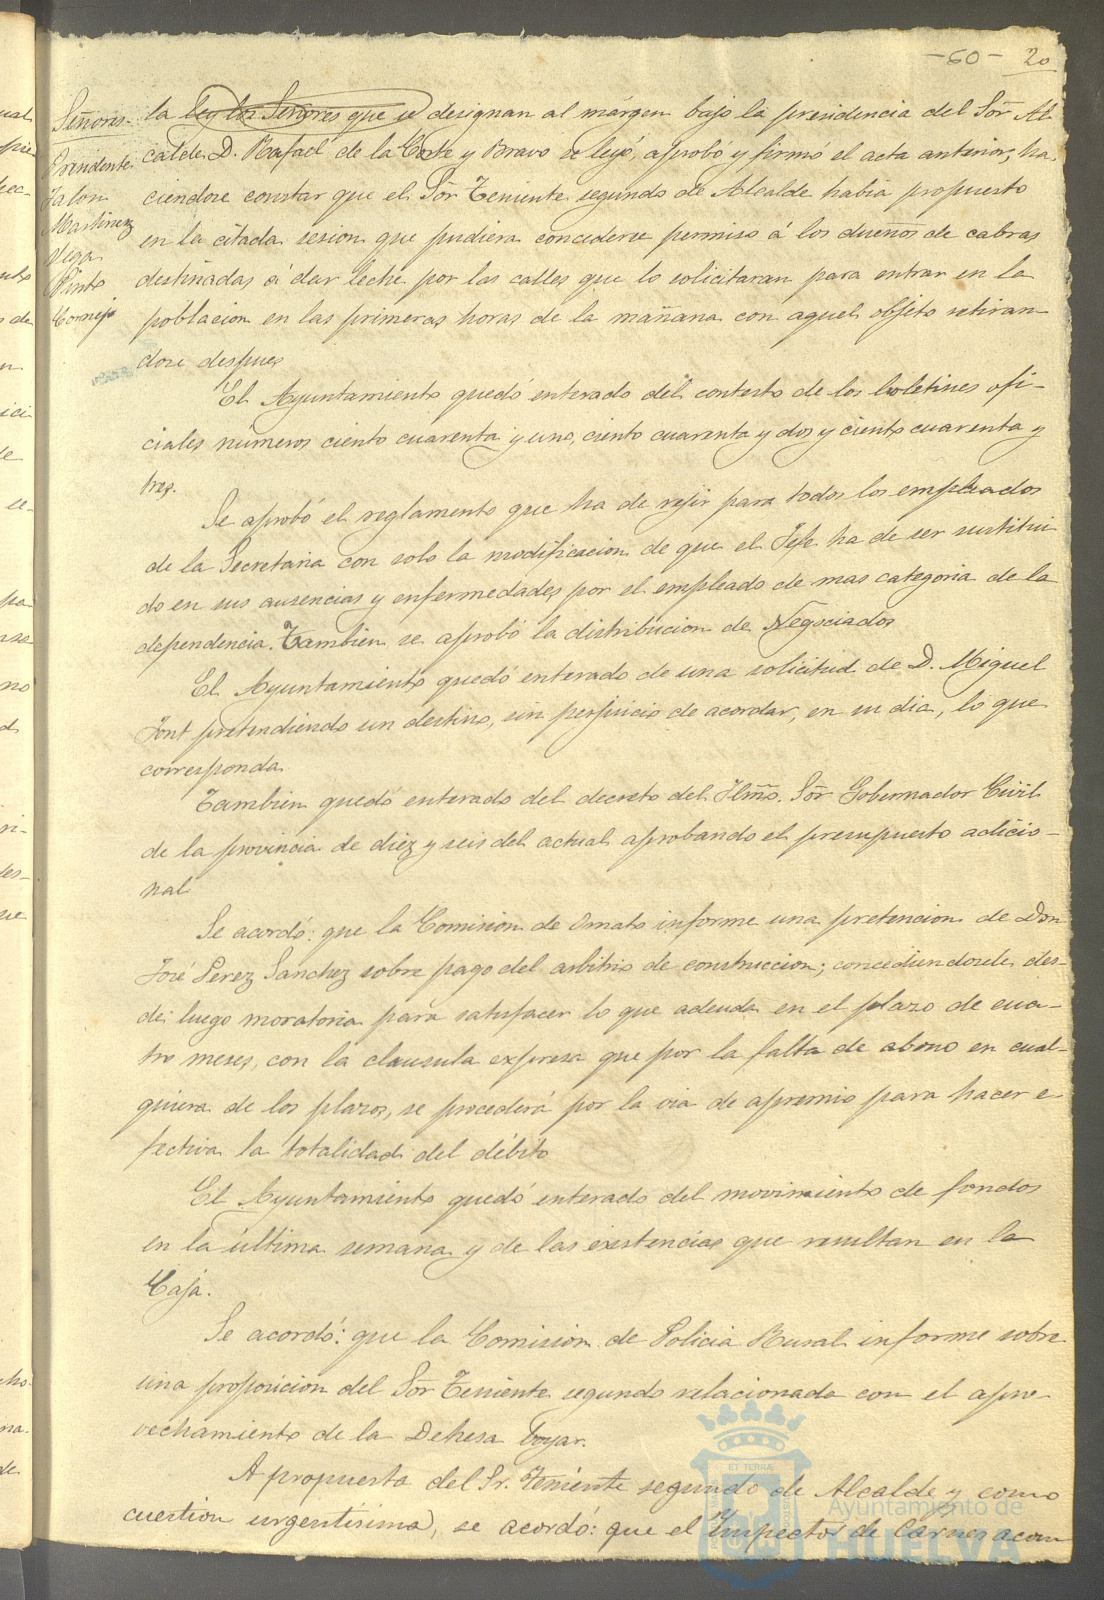 -60- 20
Señores.
Presidente
Jalon
Martinez
Vega
Pinto
Cornejo
la ley los Señores que se designan al márgen bajo la presidencia del Sõr Al-
calde D. Rafael de la Corte y Bravo se leyó, aprobó y firmó el acta anterior, ha-
ciendose constar que el Sõr Teniente segundo de Alcalde habia propuesto
en la citada sesion que pudiera concederse permiso á los dueños de cabras
destinadas á dar leche por las calles que lo solicitaran para entrar en la
poblacion en las primeras horas de la mañana con aquel objeto retiran-
dose despues
El Ayuntamiento quedó enterado del contesto de los boletines ofi-
ciales números ciento cuarenta y uno, ciento cuarenta y dos y ciento cuarenta y
tres.
Se aprobó el reglamento que ha de rejir para todos los empleados
de la Secretaria con solo la modificacion de que el Jefe ha de ser sustitui
do en sus ausencias y enfermedades por el empleado de mas categoria de la
dependencia. Tambien se aprobó la distribucion de Negociados
El Ayuntamiento quedó enterado de una solicitud de D. Miguel
Font pretendiendo un destino, sin perjuicio de acordar, en su dia, lo que
corresponda
Tambien quedó enterado del decreto del Ilmõ. Sõr Gobernador Civil
de la provincia de diez y seis del actual aprobando el presupuesto adicio-
nal
Se acordó: que la Comision de Ornato informe una pretencion de Don
José Perez Sanchez sobre pago del arbitrio de construccion; concediendosele des-
de luego moratoria para satisfacer lo que adeuda en el plazo de cua-
tro meses, con la clausula expresa que por la falta de abono en cual-
quiera de los plazos, se procederá por la via de apremio para hacer e-
fectiva la totalidad del débito
El Ayuntamiento quedó enterado del movimiento de fondos
en la última semana y de las existencias que resultan en la
Caja.
Se acordó: que la Comision de Policia Rural informe sobre
una proposicion del Sõr Teniente segundo relacionada con el apro-
vechamiento de la Dehesa boyar.
A propuesta del Sr. Teniente segundo de Alcalde y como
cuestion urgentisima, se acordó: que el Inspector de Carnes acom
Ayuntamiento de
HUELVA